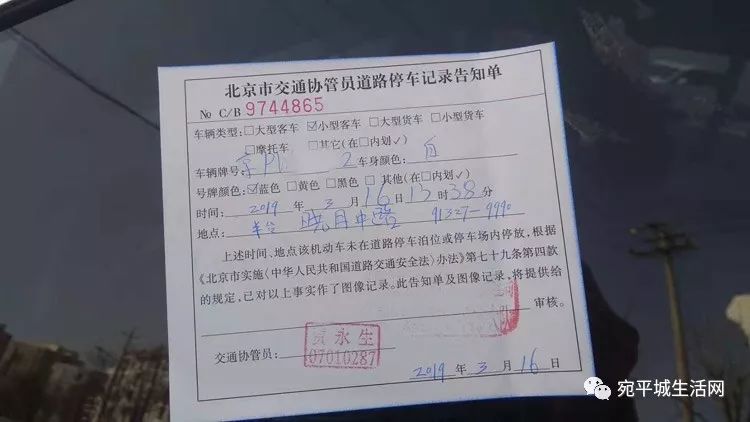 北京市交通协管员道路停车记录告知单
No C/B 9744865
车辆类型:□大型客车 ☑小型客车 □大型货车 □小型货车
□摩托车 □其它(在□内划✓)
车辆牌号: 京 2 车身颜色: 白
号牌颜色:☑蓝色 □黄色 □黑色 □其他(在□内划✓)
时间: 2019 年 3 月 16 日 13 时 38 分
地点: 丰台 晓月中路 91327-9990
上述时间、地点该机动车未在道路停车泊位或停车场内停放,根据
《北京市实施〈中华人民共和国道路交通安全法〉办法》第七十九条第四款
的规定,已对以上事实作了图像记录。此告知单及图像记录,将提供给
审核。
交通协管员: 永生
07010287
2019 年 3 月 16 日
宛平城生活网